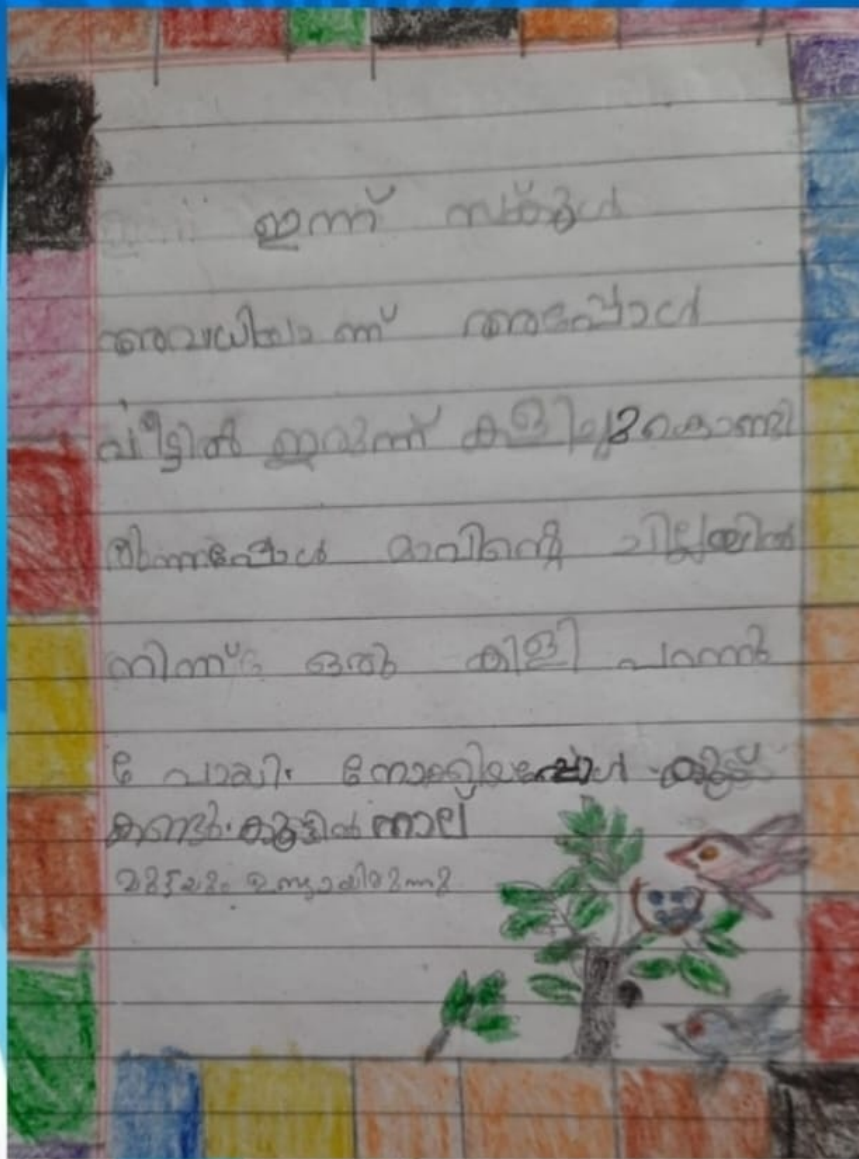 ഇന്ന് സ്കൂൾ
അവധിയാണ് അപ്പോൾ
വീട്ടിൽ ഇരുന്ന് കളിച്ചുകൊണ്ടി
രുന്നപ്പോൾ മാവിന്റെ ചില്ലയിൽ
നിന്ന് ഒരു കിളി പറന്നു
പോയി. നോക്കിയപ്പോൾ കൂട്
കണ്ടു. കൂട്ടിൽ നാല്
മുട്ടയും ഉണ്ടായിരുന്നു